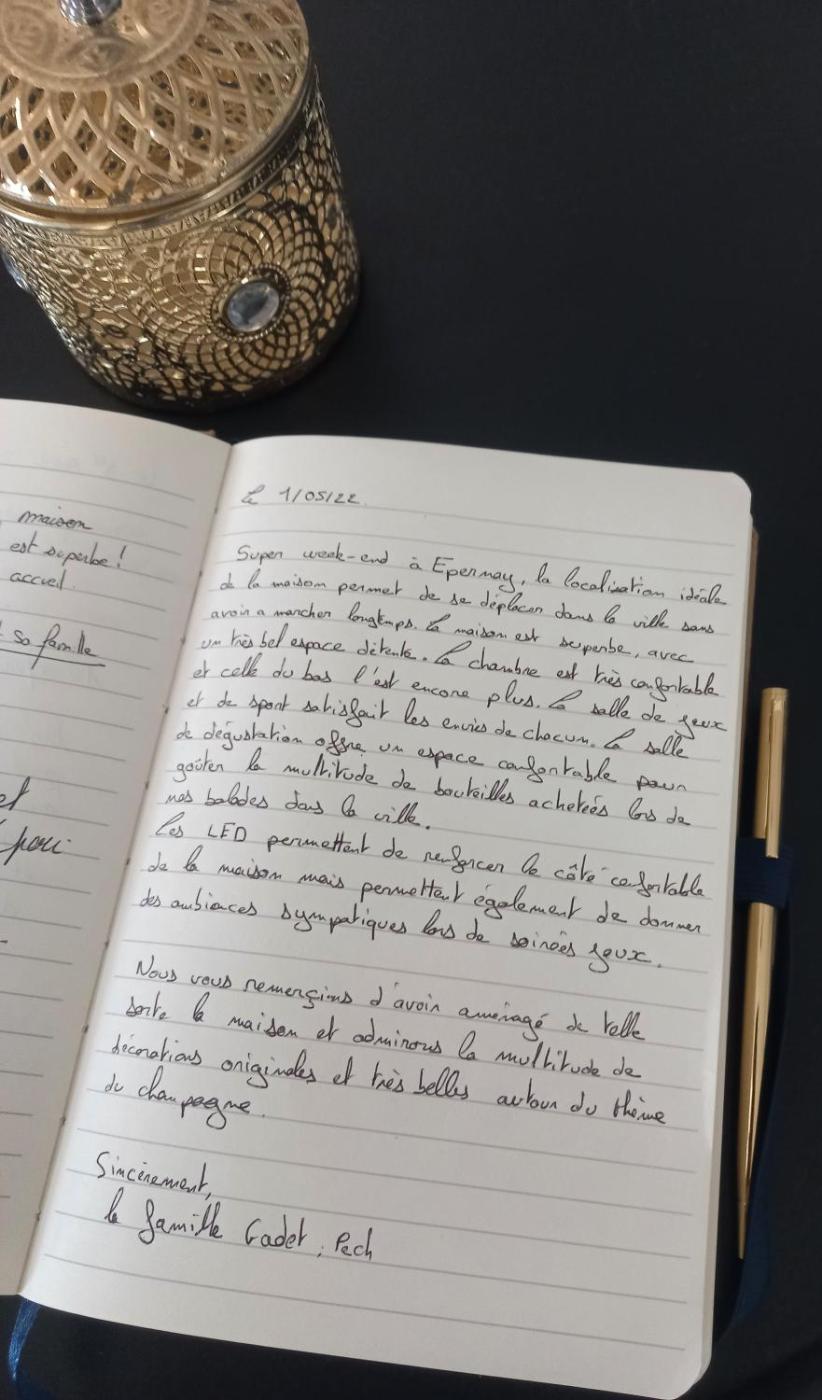 maison
est superbe !
accueil.
sa famille
et
pour
Le 1/05/22.
Super week-end à Epernay, la localisation idéale
de la maison permet de se déplacer dans la ville sans
avoir a marcher longtemps. La maison est superbe, avec
un très bel espace détente. La chambre est très confortable
et celle du bas l'est encore plus. La salle de jeux
et de sport satisfait les envies de chacun. La salle
de dégustation offre un espace confortable pour
goûter la multitude de bouteilles achetées lors de
nos balades dans la ville.
Les LED permettent de renforcer le côté confortable
de la maison mais permettent également de donner
des ambiances sympatiques lors de soirées jeux.
Nous vous remerçions d'avoir aménagé de telle
sorte la maison et admirons la multitude de
décorations originales et très belles autour du thème
du champagne.
Sincèrement,
la famille Gadet, Pech